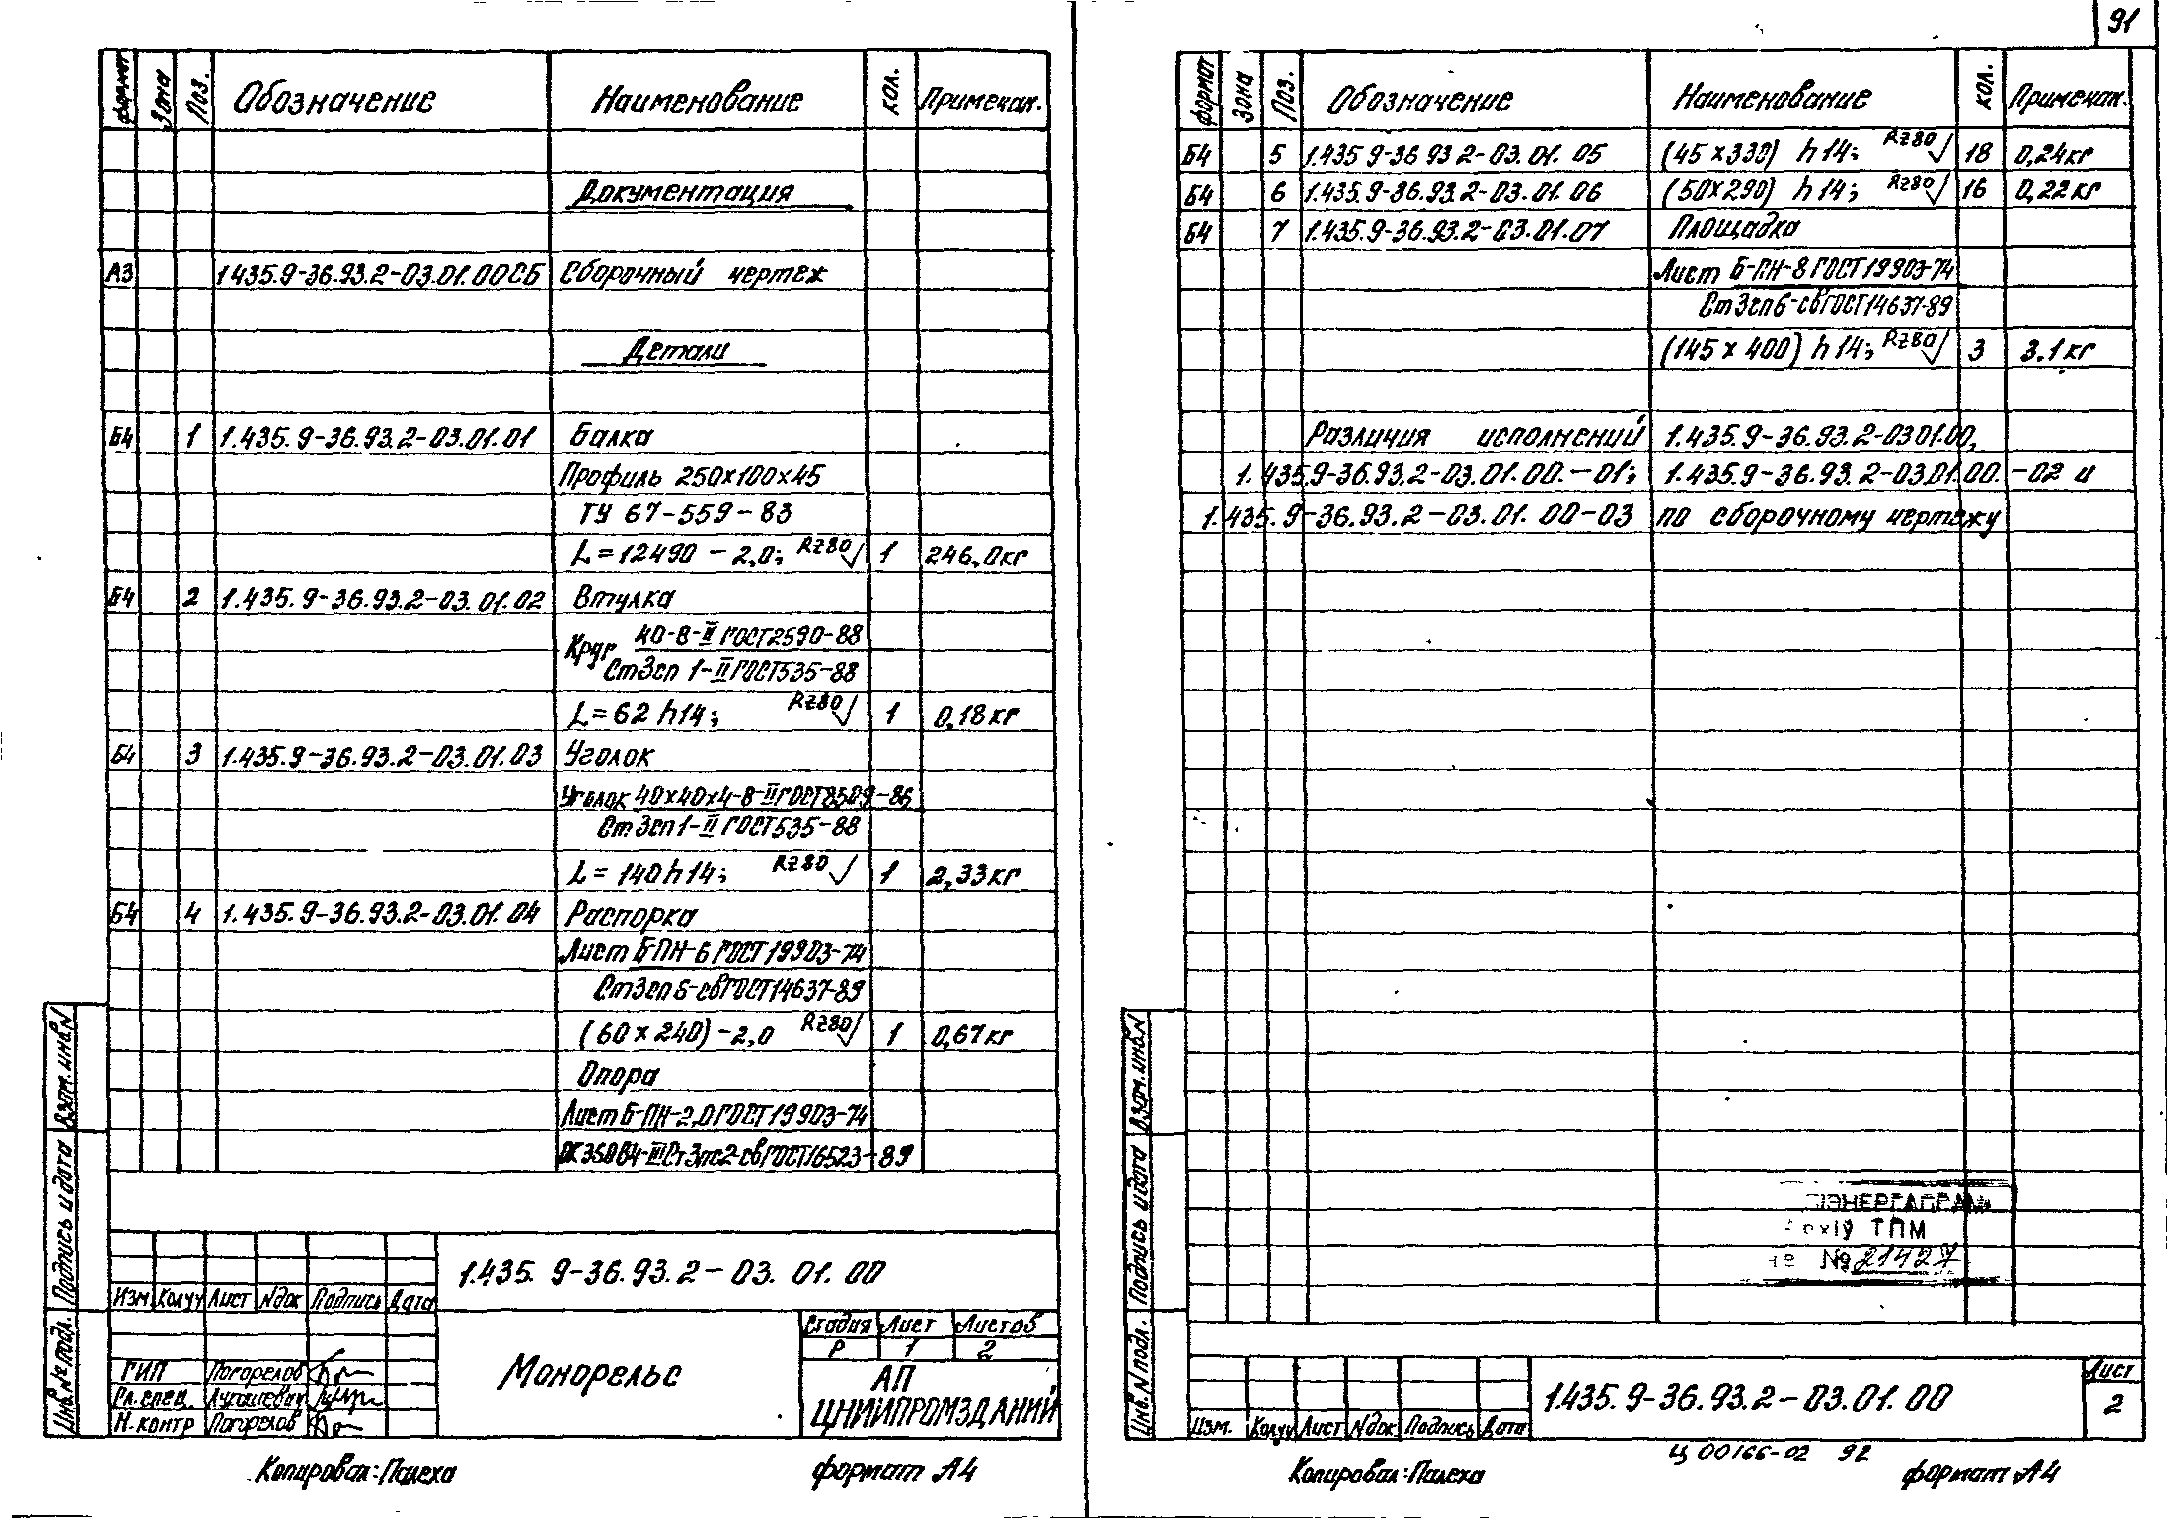 91
формат Зона Поз. Обозначение Наименование кол. Примечан.
Документация
А3 1.435.9-36.93.2-03.01.00СБ Сборочный чертеж
Детали
Б4 1 1.435.9-36.93.2-03.01.01 Балка
Профиль 250х100х45
ТУ 67-559-83
L=12490-2,0; Rz80 1 246,0кг
Б4 2 1.435.9-36.93.2-03.01.02 Втулка
40-В-II ГОСТ2590-88
Круг
Ст3сп 1-II ГОСТ535-88
L=62 h14; Rz80 1 0,18кг
Б4 3 1.435.9-36.93.2-03.01.03 Уголок
Уголок 40х40х4-В-II ГОСТ8509-86
Ст3сп1-II ГОСТ535-88
L=140h14; Rz80 1 2,33кг
Б4 4 1.435.9-36.93.2-03.01.04 Распорка
Лист Б-ПН-6 ГОСТ19903-74
Ст3сп6-свГОСТ14637-89
(60х240)-2,0 Rz80 1 0,67кг
Опора
Лист Б-ПН-2,0ГОСТ19903-74
ОК350В4-III Ст3пс2-свГОСТ16523-89
1.435.9-36.93.2-03.01.00
Изм Колуч Лист Nдок Подпись Дата
Монорельс
Стадия Лист Листов
Р 1 2
АП
ЦНИИПРОМЗДАНИЙ
ГИП Погорелов
Гл.спец.
Н.контр Погорелов
Взам.инв.N
Подпись и дата
Инв.№ подл.
Копировал: Палеха формат А4
формат Зона Поз. Обозначение Наименование кол. Примечан.
Б4 5 1.435.9-36.93.2-03.01.05 (45х330) h14; Rz80 18 0,24кг
Б4 6 1.435.9-36.93.2-03.01.06 (50х290) h14; Rz80 16 0,22кг
Б4 7 1.435.9-36.93.2-03.01.07 Площадка
Лист Б-ПН-8 ГОСТ19903-74
Ст3сп6-свГОСТ14637-89
(145х400) h14; Rz80 3 3.1кг
Различия исполнений 1.435.9-36.93.2-03.01.00,
1.435.9-36.93.2-03.01.00.-01; 1.435.9-36.93.2-03.01.00.-02 и
1.435.9-36.93.2-03.01.00-03 по сборочному чертежу
ТПМ
№ 21427
Взам.инв.N
Подпись и дата
Инв.N подл.
Изм. Колуч Лист Nдок Подпись Дата
1.435.9-36.93.2-03.01.00
Лист
2
Ц 00166-02 92
Копировал: Палеха формат А4